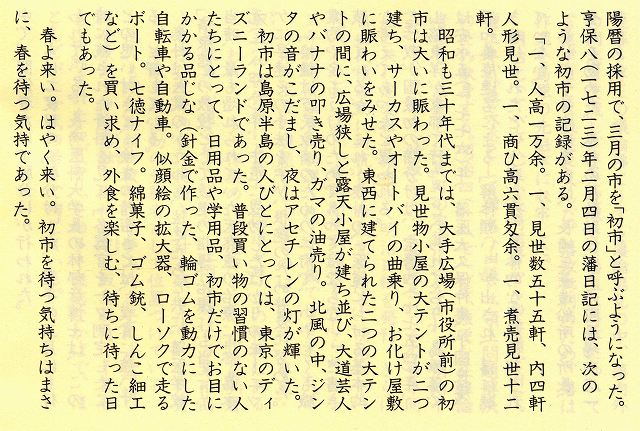 陽暦の採用で、三月の市を「初市」と呼ぶようになった。
享保八（一七二三）年二月四日の藩日記には、次の
ような初市の記録がある。
「一、人高一万余。一、見世数五十五軒、内四軒
人形見世。一、商ひ高六貫匁余。一、煮売見世十二
軒。
昭和も三十年代までは、大手広場（市役所前）の初
市は大いに賑わった。見世物小屋の大テントが二つ
建ち、サーカスやオートバイの曲乗り、お化け屋敷
に賑わいをみせた。東西に建てられた二つの大テン
トの間に、広場狭しと露天小屋が建ち並び、大道芸人
やバナナの叩き売り、ガマの油売り。北風の中、ジン
タの音がこだまし、夜はアセチレンの灯が輝いた。
初市は島原半島の人びとにとっては、東京のディ
ズニーランドであった。普段買い物の習慣のない人
たちにとって、日用品や学用品、初市だけでお目に
かかる品じな（針金で作った、輪ゴムを動力にした
自転車や自動車。似顔絵の拡大器、ローソクで走る
ボート。七徳ナイフ。綿菓子、ゴム銃、しんこ細工
など）を買い求め、外食を楽しむ、待ちに待った日
でもあった。
春よ来い。はやく来い。初市を待つ気持ちはまさ
に、春を待つ気持であった。